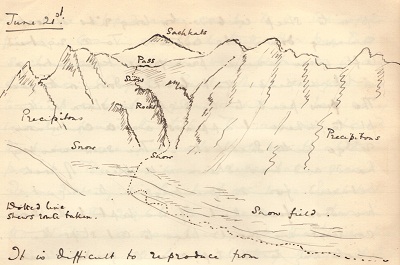 June 21st
Sachkals
Pass
Snow
Rocks
Precipitous
Precipitous
Snow
Snow
Dotted line
shews route taken.
Snow field.
It is difficult to reproduce from